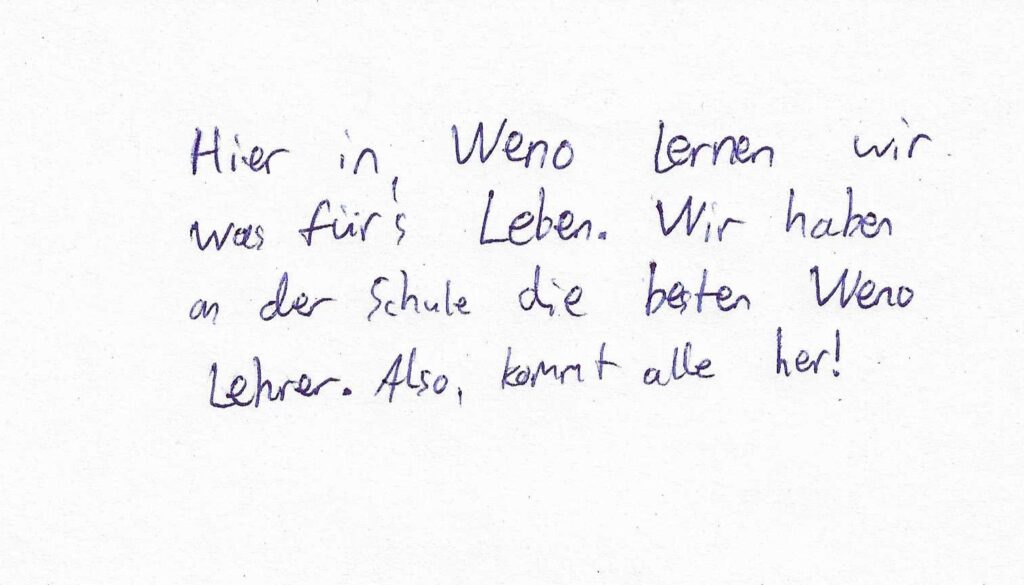 Hier in, Weno Lernen wir
was für's Leben. Wir haben
an der Schule die besten Weno
Lehrer. Also, kommt alle her!